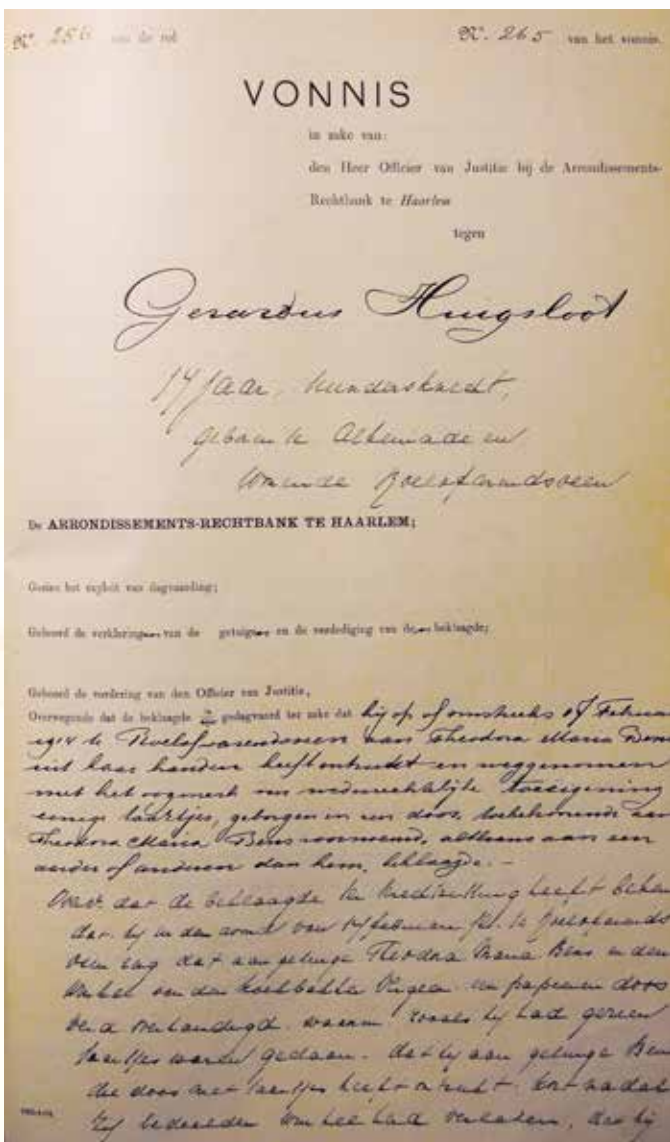 No. 256 van de rol
No. 265 van het vonnis.
VONNIS
in zake van:
den Heer Officier van Justitie bij de Arrondissements-
Rechtbank te Haarlem
tegen
Gerardus Huigsloot
17 jaar,
geboren te Alkemade en
wonende Roelofarendsveen
De ARRONDISSEMENTS-RECHTBANK TE HAARLEM;
Gezien het exploit van dagvaarding;
Gehoord de verklaring van de getuige en de verdediging van de beklaagde;
Gehoord de vordering van den Officier van Justitie,
Overwegende dat de beklaagde is gedagvaard ter zake dat hij op of omstreeks 17 Februa
te Roelofarendsveen aan Theodora Maria Bens
uit haar handen heeft ontrukt en weggenomen
met het oogmerk van wederrechtelijke toeëigening
eenige taartjes, geborgen in een doos, toebehoorende aan
Theodora Maria Bens voornoemd, althans aan een
ander of anderen dan hem, beklaagde.-
Overw. dat de beklaagde ter terechtzitting heeft beken
dat hij in den avond van 17 februari te Roelofarends
veen zag dat aan getuige Theodora Maria Bens in den
winkel van den een papieren doos
werd overhandigd waarin zooals hij had gezien
taartjes waren gedaan. dat hij aan getuige Bens
die doos met taartjes heeft ontrukt kort nadat
zij had verlaten, dat hij